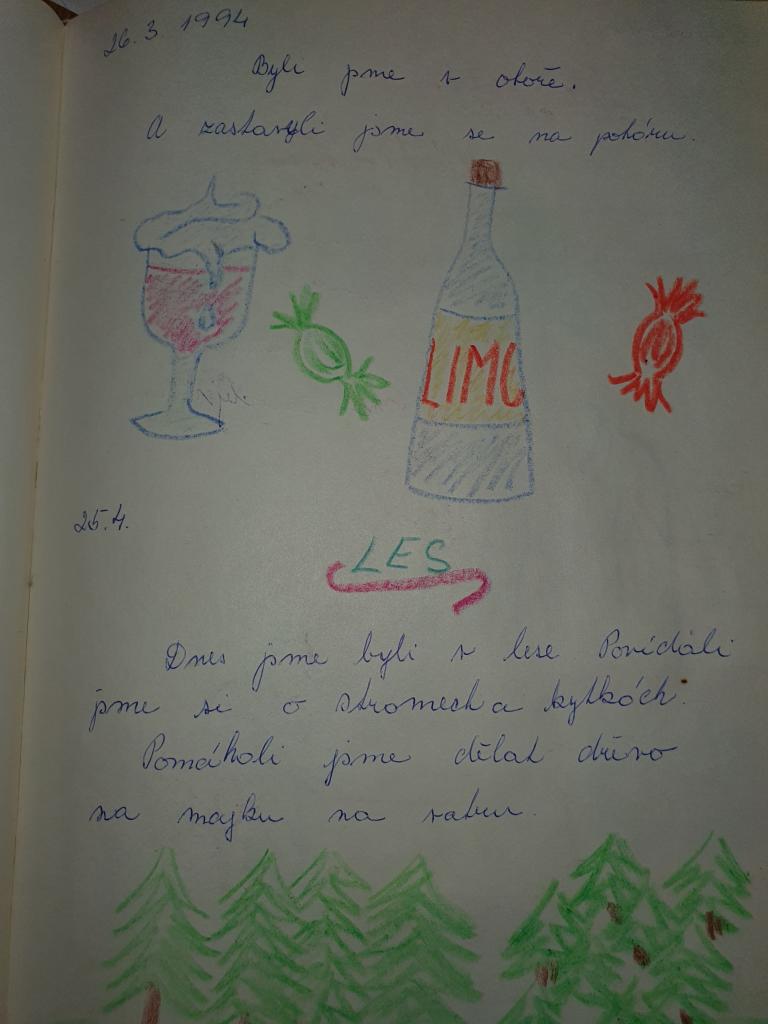 26.3 1994
Byli jsme v oboře.
A zastavyli jsme se na pohóru.
LIMO
25.4.
LES
Dnes jsme byli v lese Povídáli
jsme si o stromech a kytkách.
Pomáhali jsme dělat dřevo
na majku na vatru.